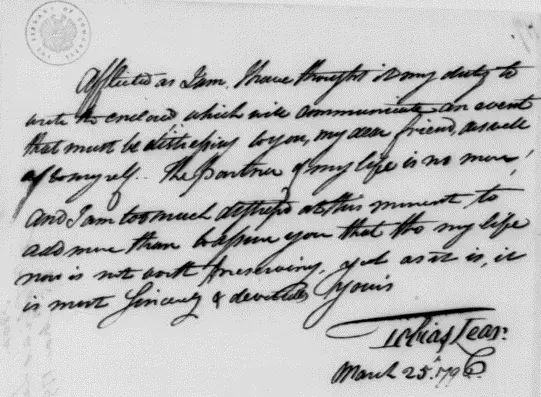 Afflicted as I am, I have thought it my duty to
write the enclosed which will communicate an event
that must be distressing to you, my dear friend, as well
as to myself. The Partner of my life is no more!
and I am too much distress'd at this moment to
add more than to assure you that tho my life
now is not worth preserving, yet as it is, it
is most Sincerely & devotedly Yours
Tobias Lear.
March 25. 1796.